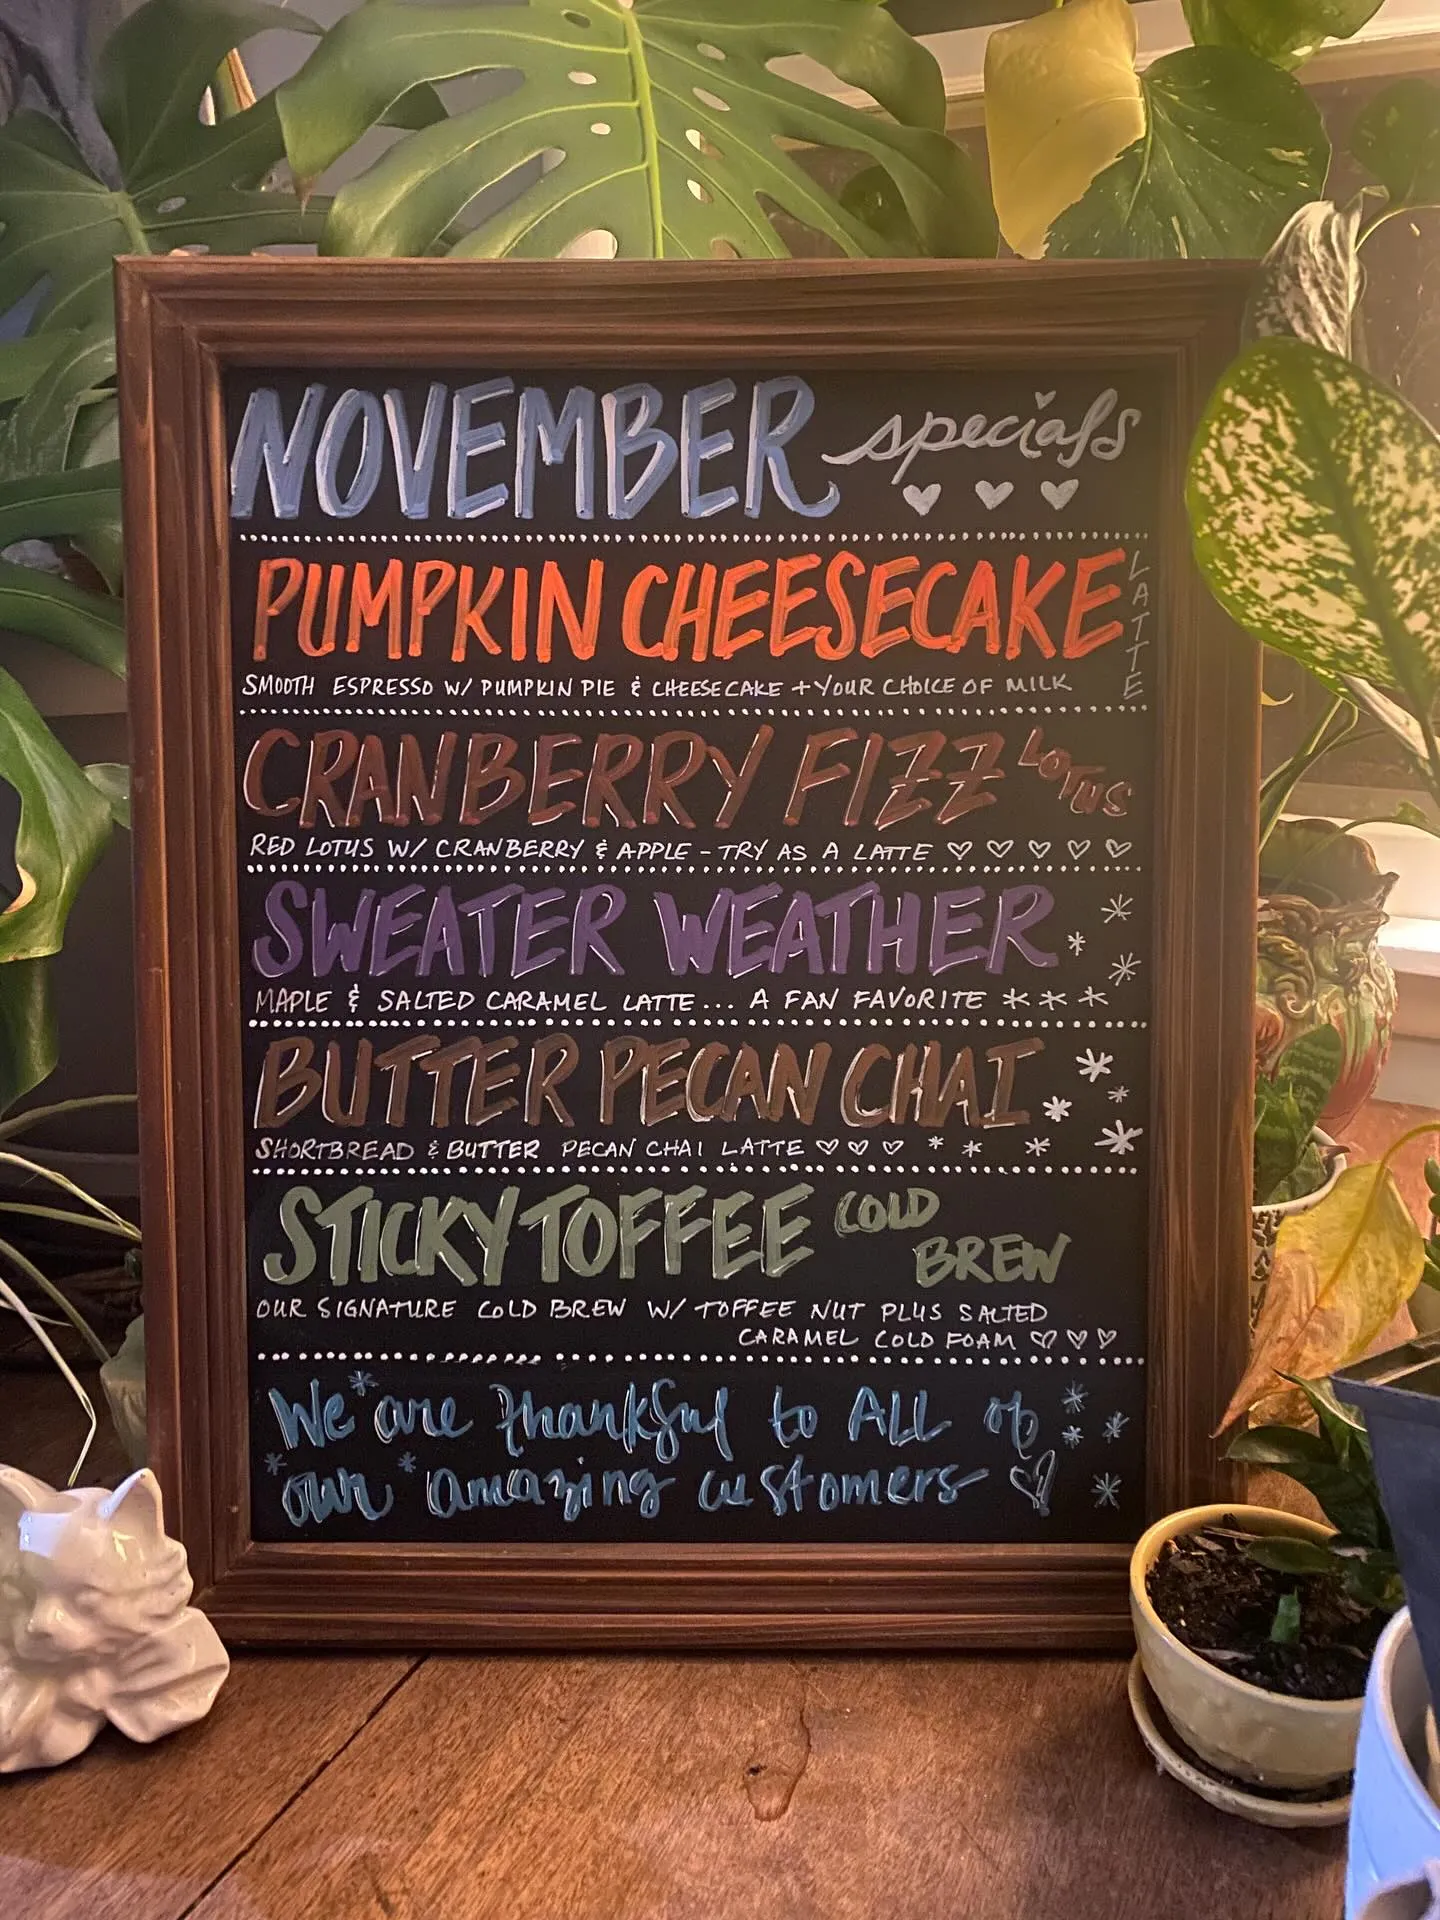 NOVEMBER specials
PUMPKIN CHEESECAKE LATTE
SMOOTH ESPRESSO W/ PUMPKIN PIE & CHEESECAKE + YOUR CHOICE OF MILK
CRANBERRY FIZZ LOTUS
RED LOTUS W/ CRANBERRY & APPLE - TRY AS A LATTE
SWEATER WEATHER
MAPLE & SALTED CARAMEL LATTE... A FAN FAVORITE
BUTTER PECAN CHAI
SHORTBREAD & BUTTER PECAN CHAI LATTE
STICKY TOFFEE COLD BREW
OUR SIGNATURE COLD BREW W/ TOFFEE NUT PLUS SALTED
CARAMEL COLD FOAM
We are thankful to ALL of
our amazing customers